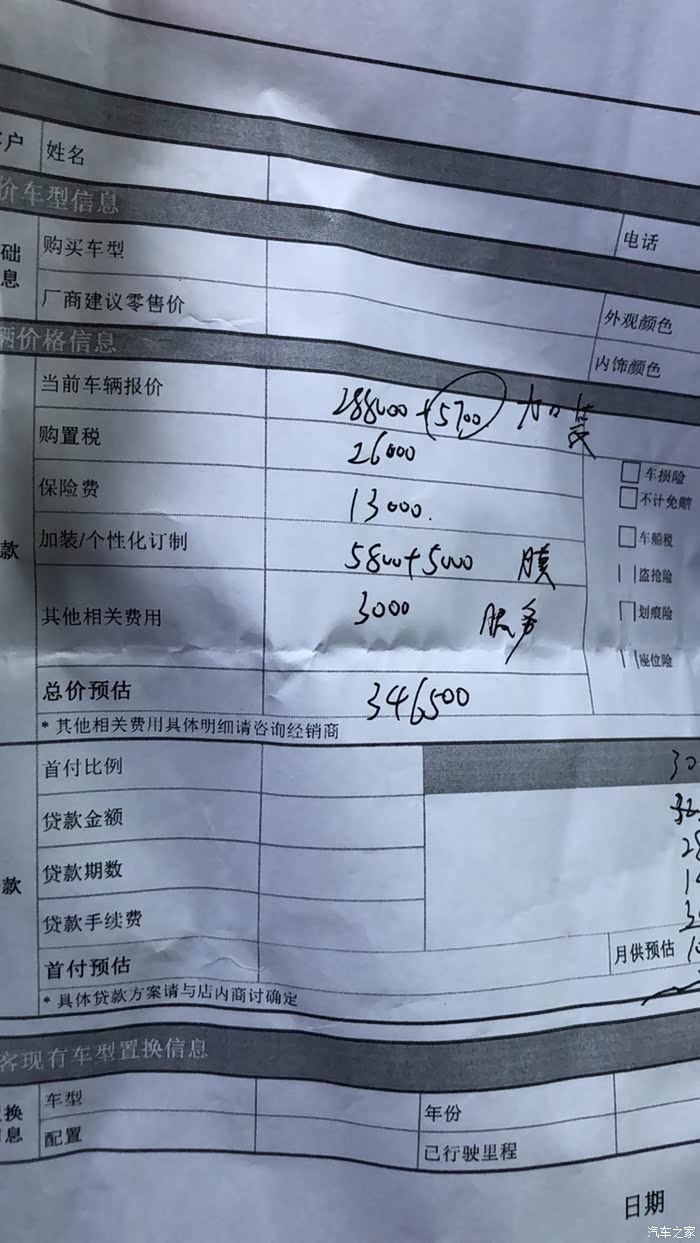 户 姓名
价车型信息
电话
础 购买车型
息
厂商建议零售价
外观颜色
辆价格信息
内饰颜色
当前车辆报价 288000+5700 加装
购置税 26000
车损险
保险费 13000.
不计免赔
加装/个性化订制 5800+5000 膜
车船税
款
盗抢险
其他相关费用 3000 服务
划痕险
座位险
总价预估 346500
* 其他相关费用具体明细请咨询经销商
首付比例
贷款金额
款 贷款期数
贷款手续费
首付预估 月供预估
* 具体贷款方案请与店内商讨确定
客现有车型置换信息
换 车型 年份
息 配置 已行驶里程
日期
汽车之家